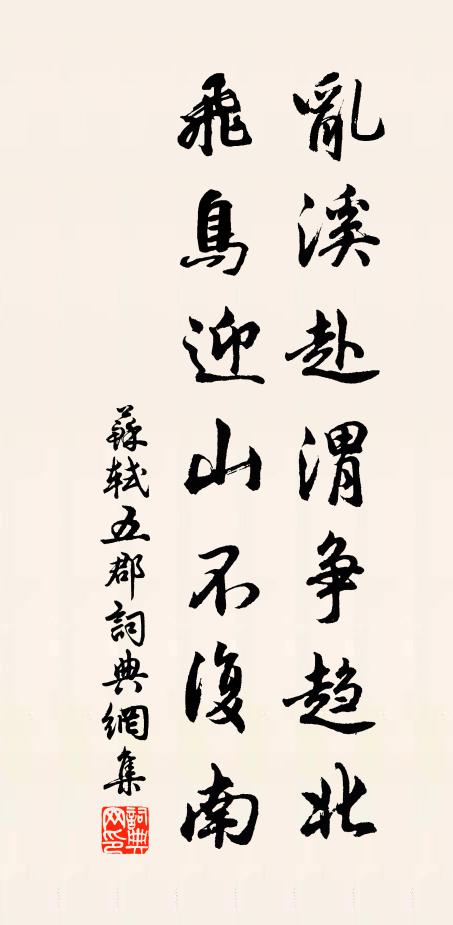 亂溪赴渭争趨北
飛鳥迎山不復南
蘇軾五郡詞典網集
詞典網印